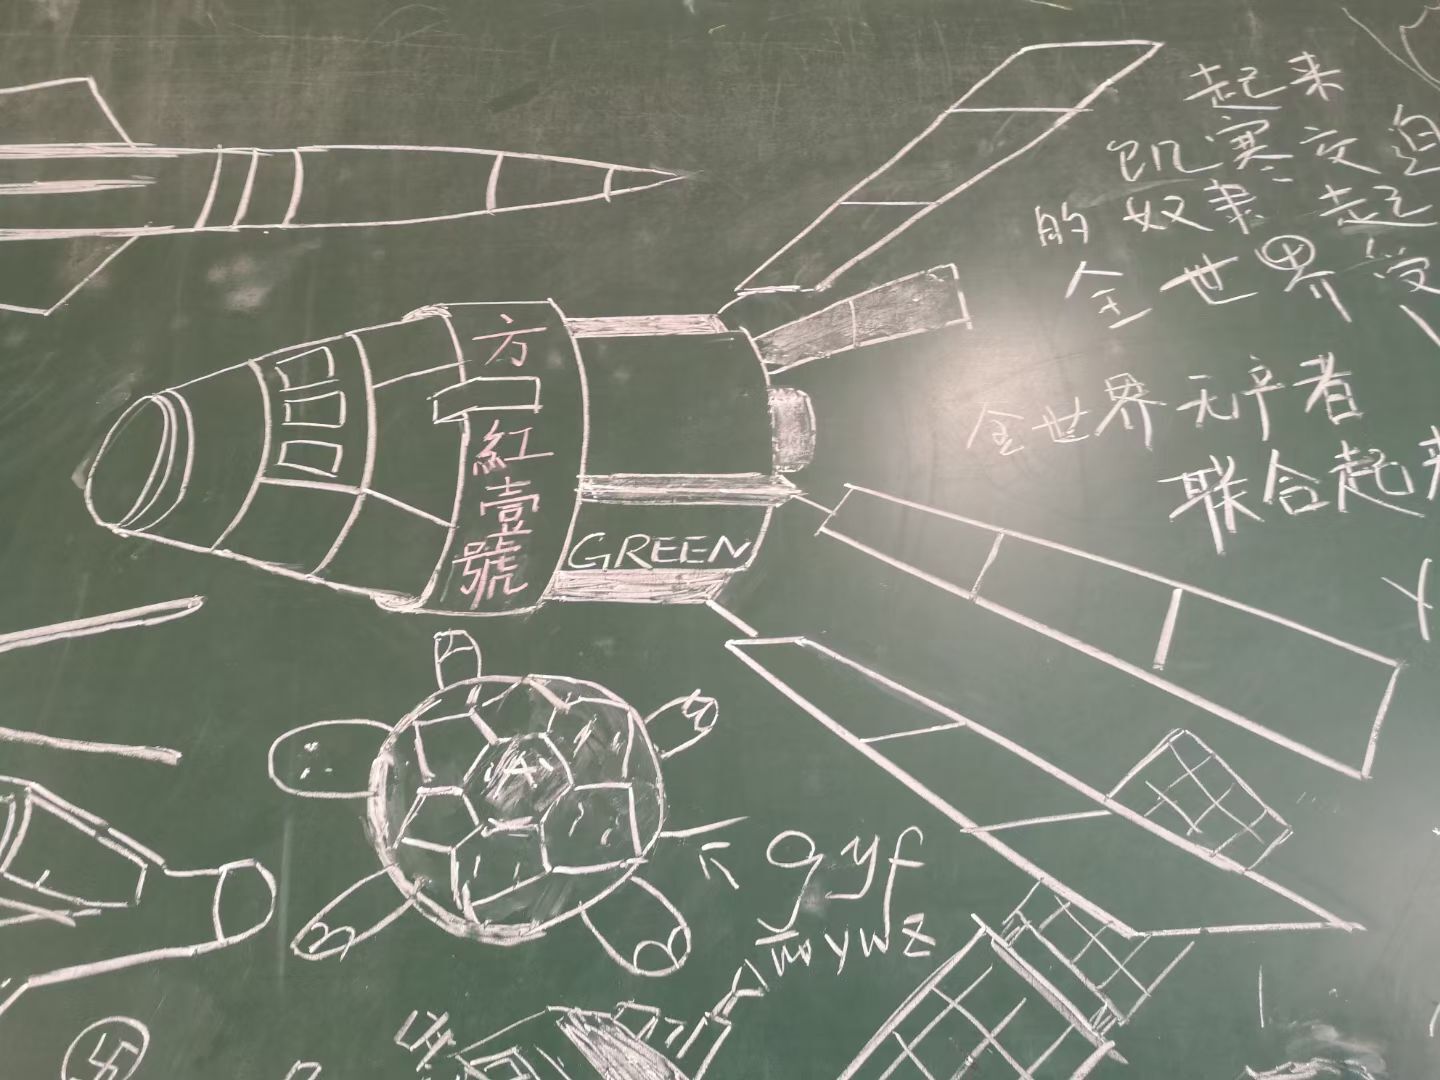 起来
饥寒交迫
的奴隶起
全世界受
全世界无产者
联合起来
方
紅壹號
GREEN
gyf